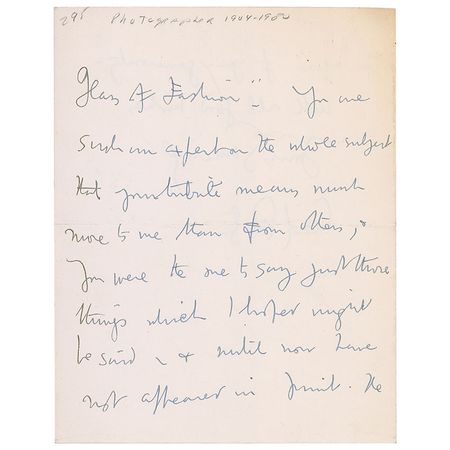 295 Photographer 1904-1980
Glass of Fashion". You are
such an expert on the whole subject
that your tribute means much
more to me than from others,
You were the one to say just those
things which I hoped might
be said & until now have
not appeared in print. He